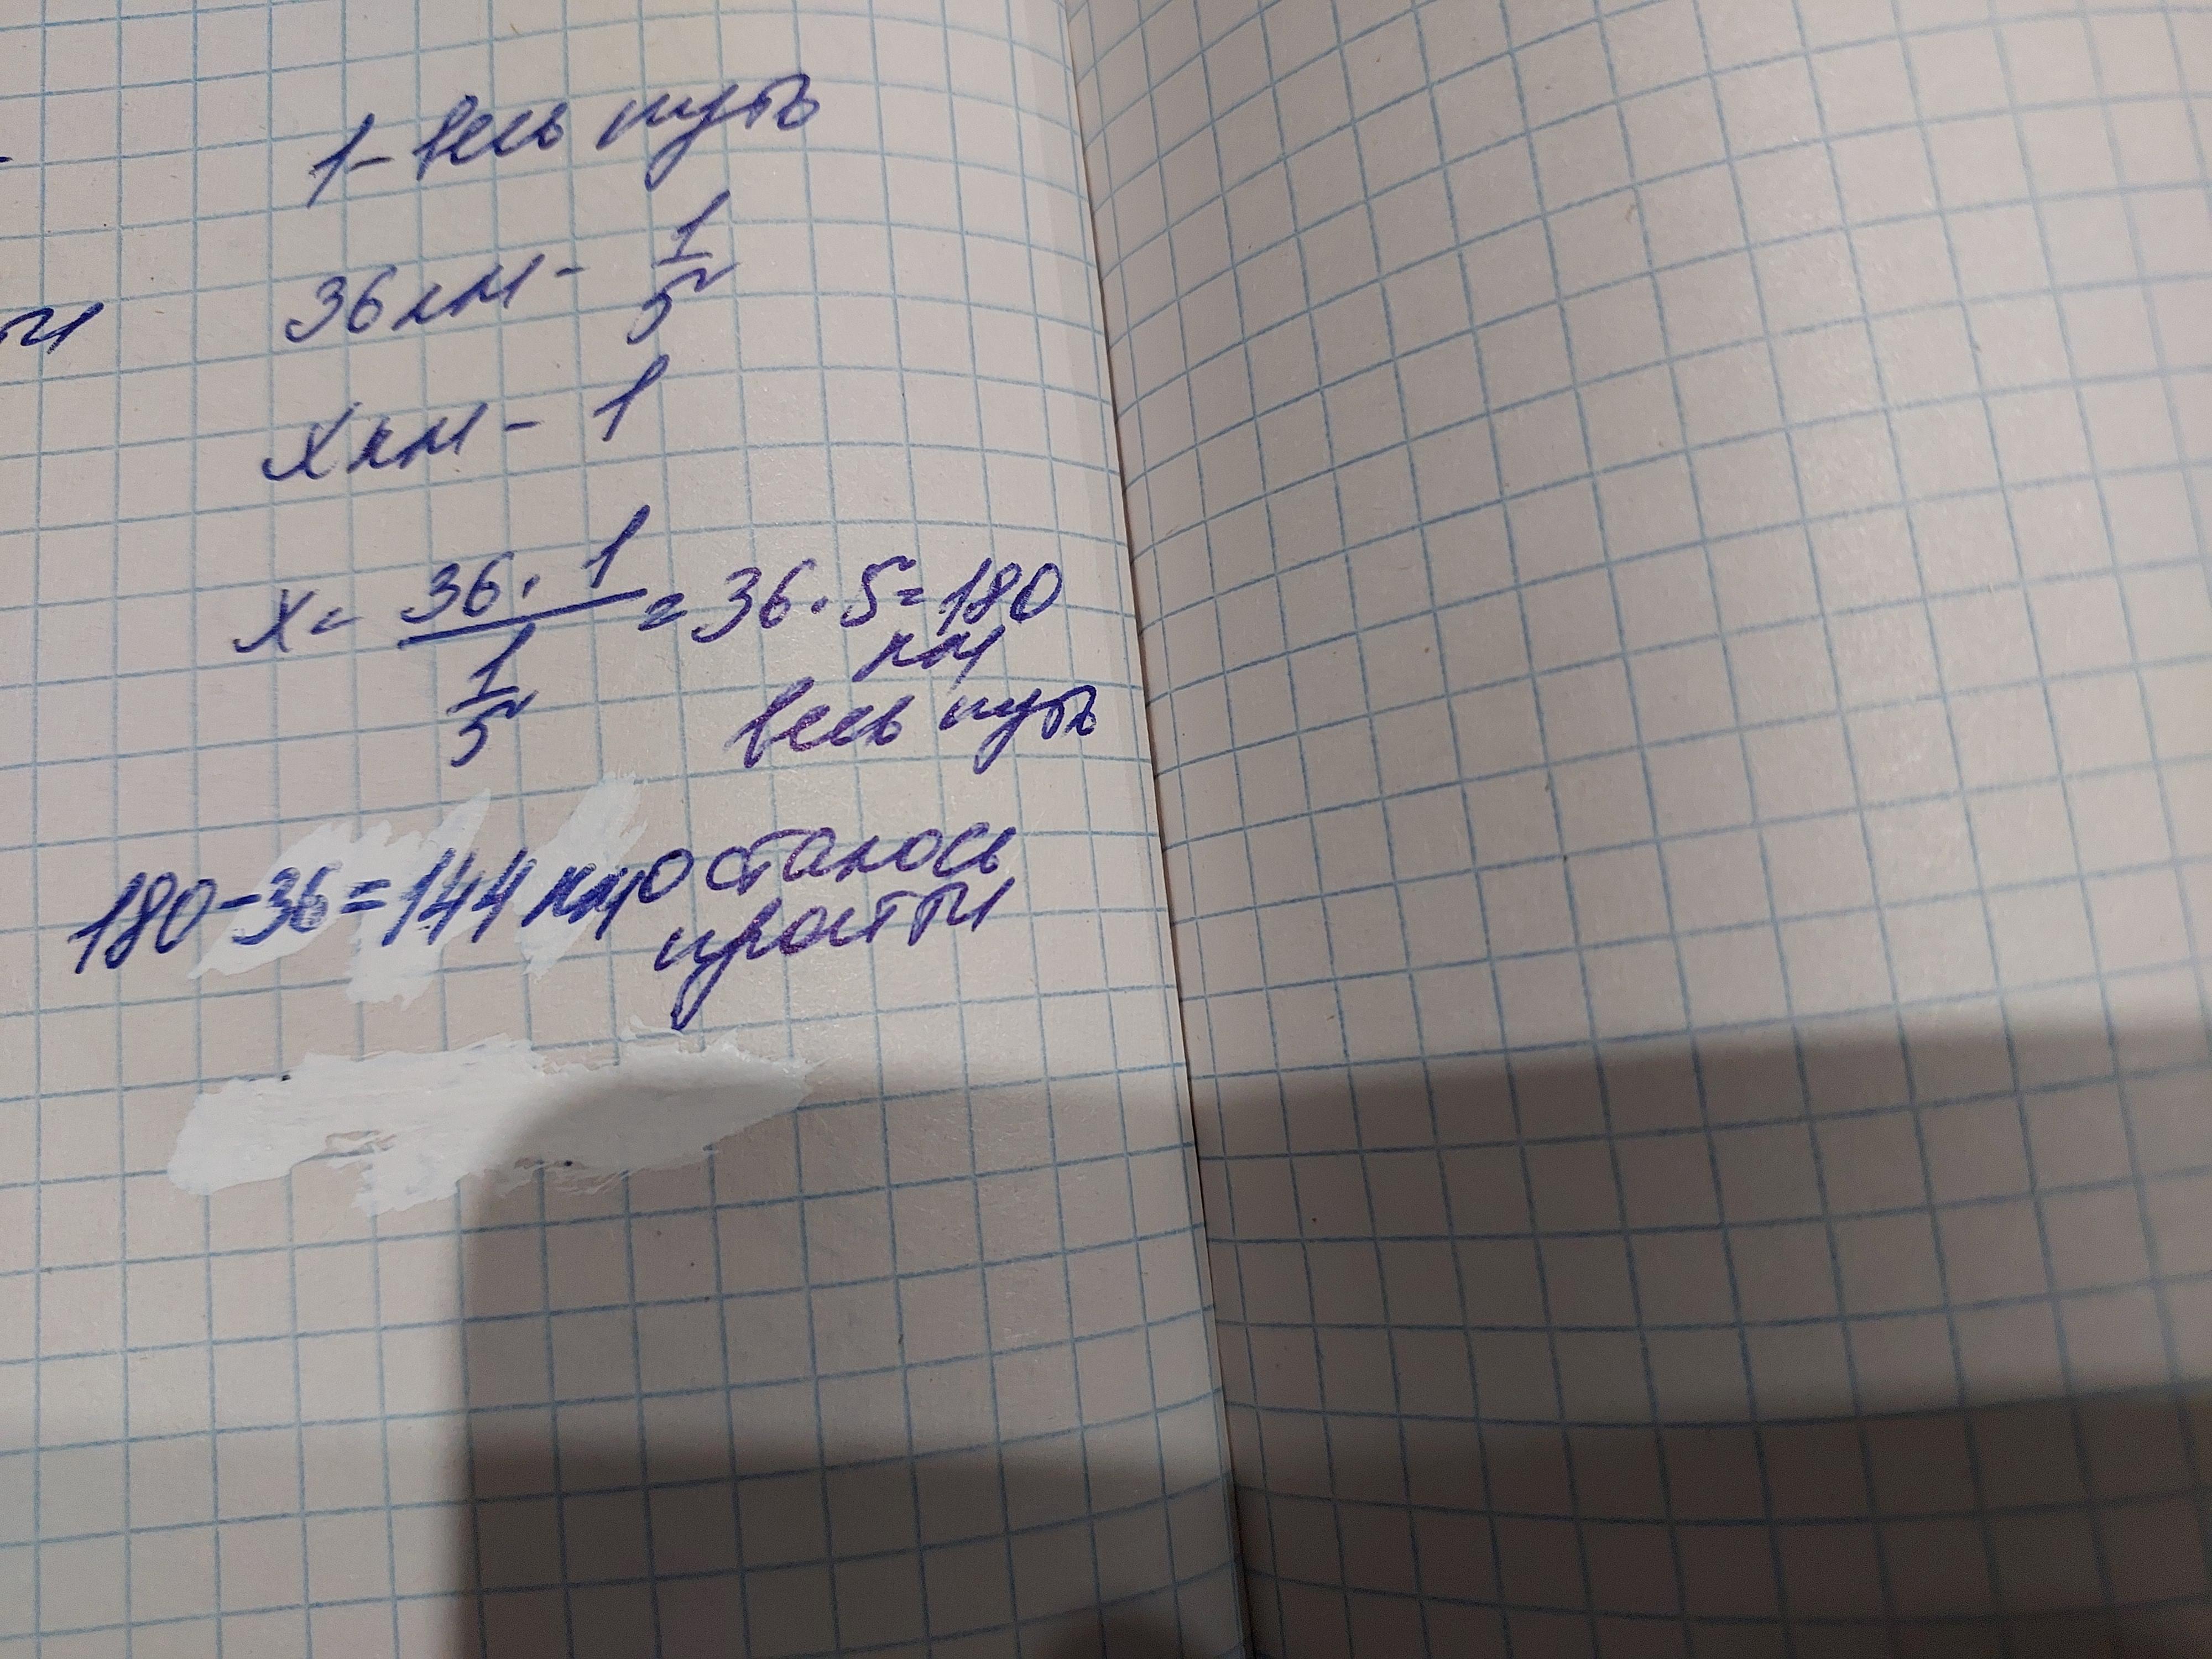 1 - весь путь
36 км - 1/5
х км - 1
х = 36 · 1 / 1/5 = 36 · 5 = 180
км
весь путь
180 - 36 = 144 км осталось
пройти